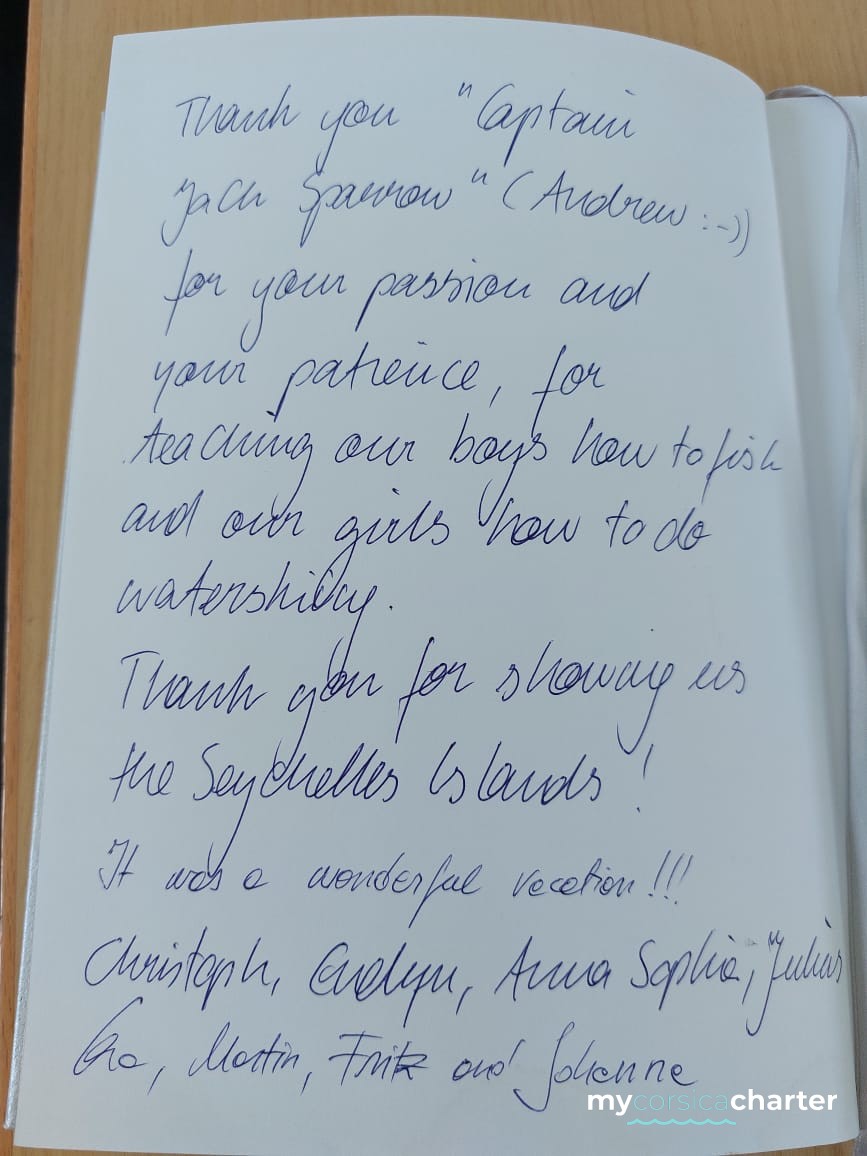 Thank you "Captain
Jack Sparrow" (Andrew :-))
for your passion and
your patience, for
teaching our boys how to fish
and our girls how to do
waterskiing.
Thank you for showing us
the Seychelles Islands!
It was a wonderful vacation!!!
Christoph, Evelyn, Anna Sophia, Julius
Eva, Martin, Fritz and Johanna
mycorsicacharter